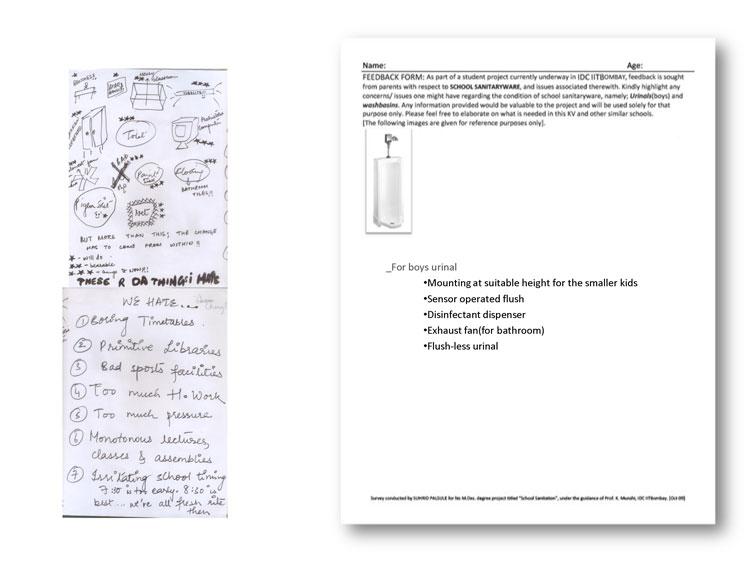 BENCHES!
Toilet
BAD
Paint
BATHROOM
TILES!!
BUT MORE THAN THIS; THE CHANGE
HAS TO COME FROM WITHIN!!
* - will do
** - bearable
THESE R DA THINGS I HATE
WE HATE...
① Boring Timetables.
② Primitive Libraries
③ Bad sports facilities
④ Too much H. Work
⑤ Too much pressure
⑥ Monotonous lectures,
classes & assemblies
⑦ Irritating school timing
7:30 is too early. 8:30 is
best... we're all fresh rite
then
Name: Age:
FEEDBACK FORM: As part of a student project currently underway in IDC IITBOMBAY, feedback is sought
from parents with respect to SCHOOL SANITARYWARE, and issues associated therewith. Kindly highlight any
concerns/ issues one might have regarding the condition of school sanitaryware, namely; Urinals(boys) and
washbasins. Any information provided would be valuable to the project and will be used solely for that
purpose only. Please feel free to elaborate on what is needed in this KV and other similar schools.
[The following images are given for reference purposes only].
_For boys urinal
•Mounting at suitable height for the smaller kids
•Sensor operated flush
•Disinfectant dispenser
•Exhaust fan(for bathroom)
•Flush-less urinal
Survey conducted by SUHRID PALSULE for his M.Des. degree project titled "School Sanitation", under the guidance of Prof. K. Munshi, IDC IITBombay. [Oct 09]